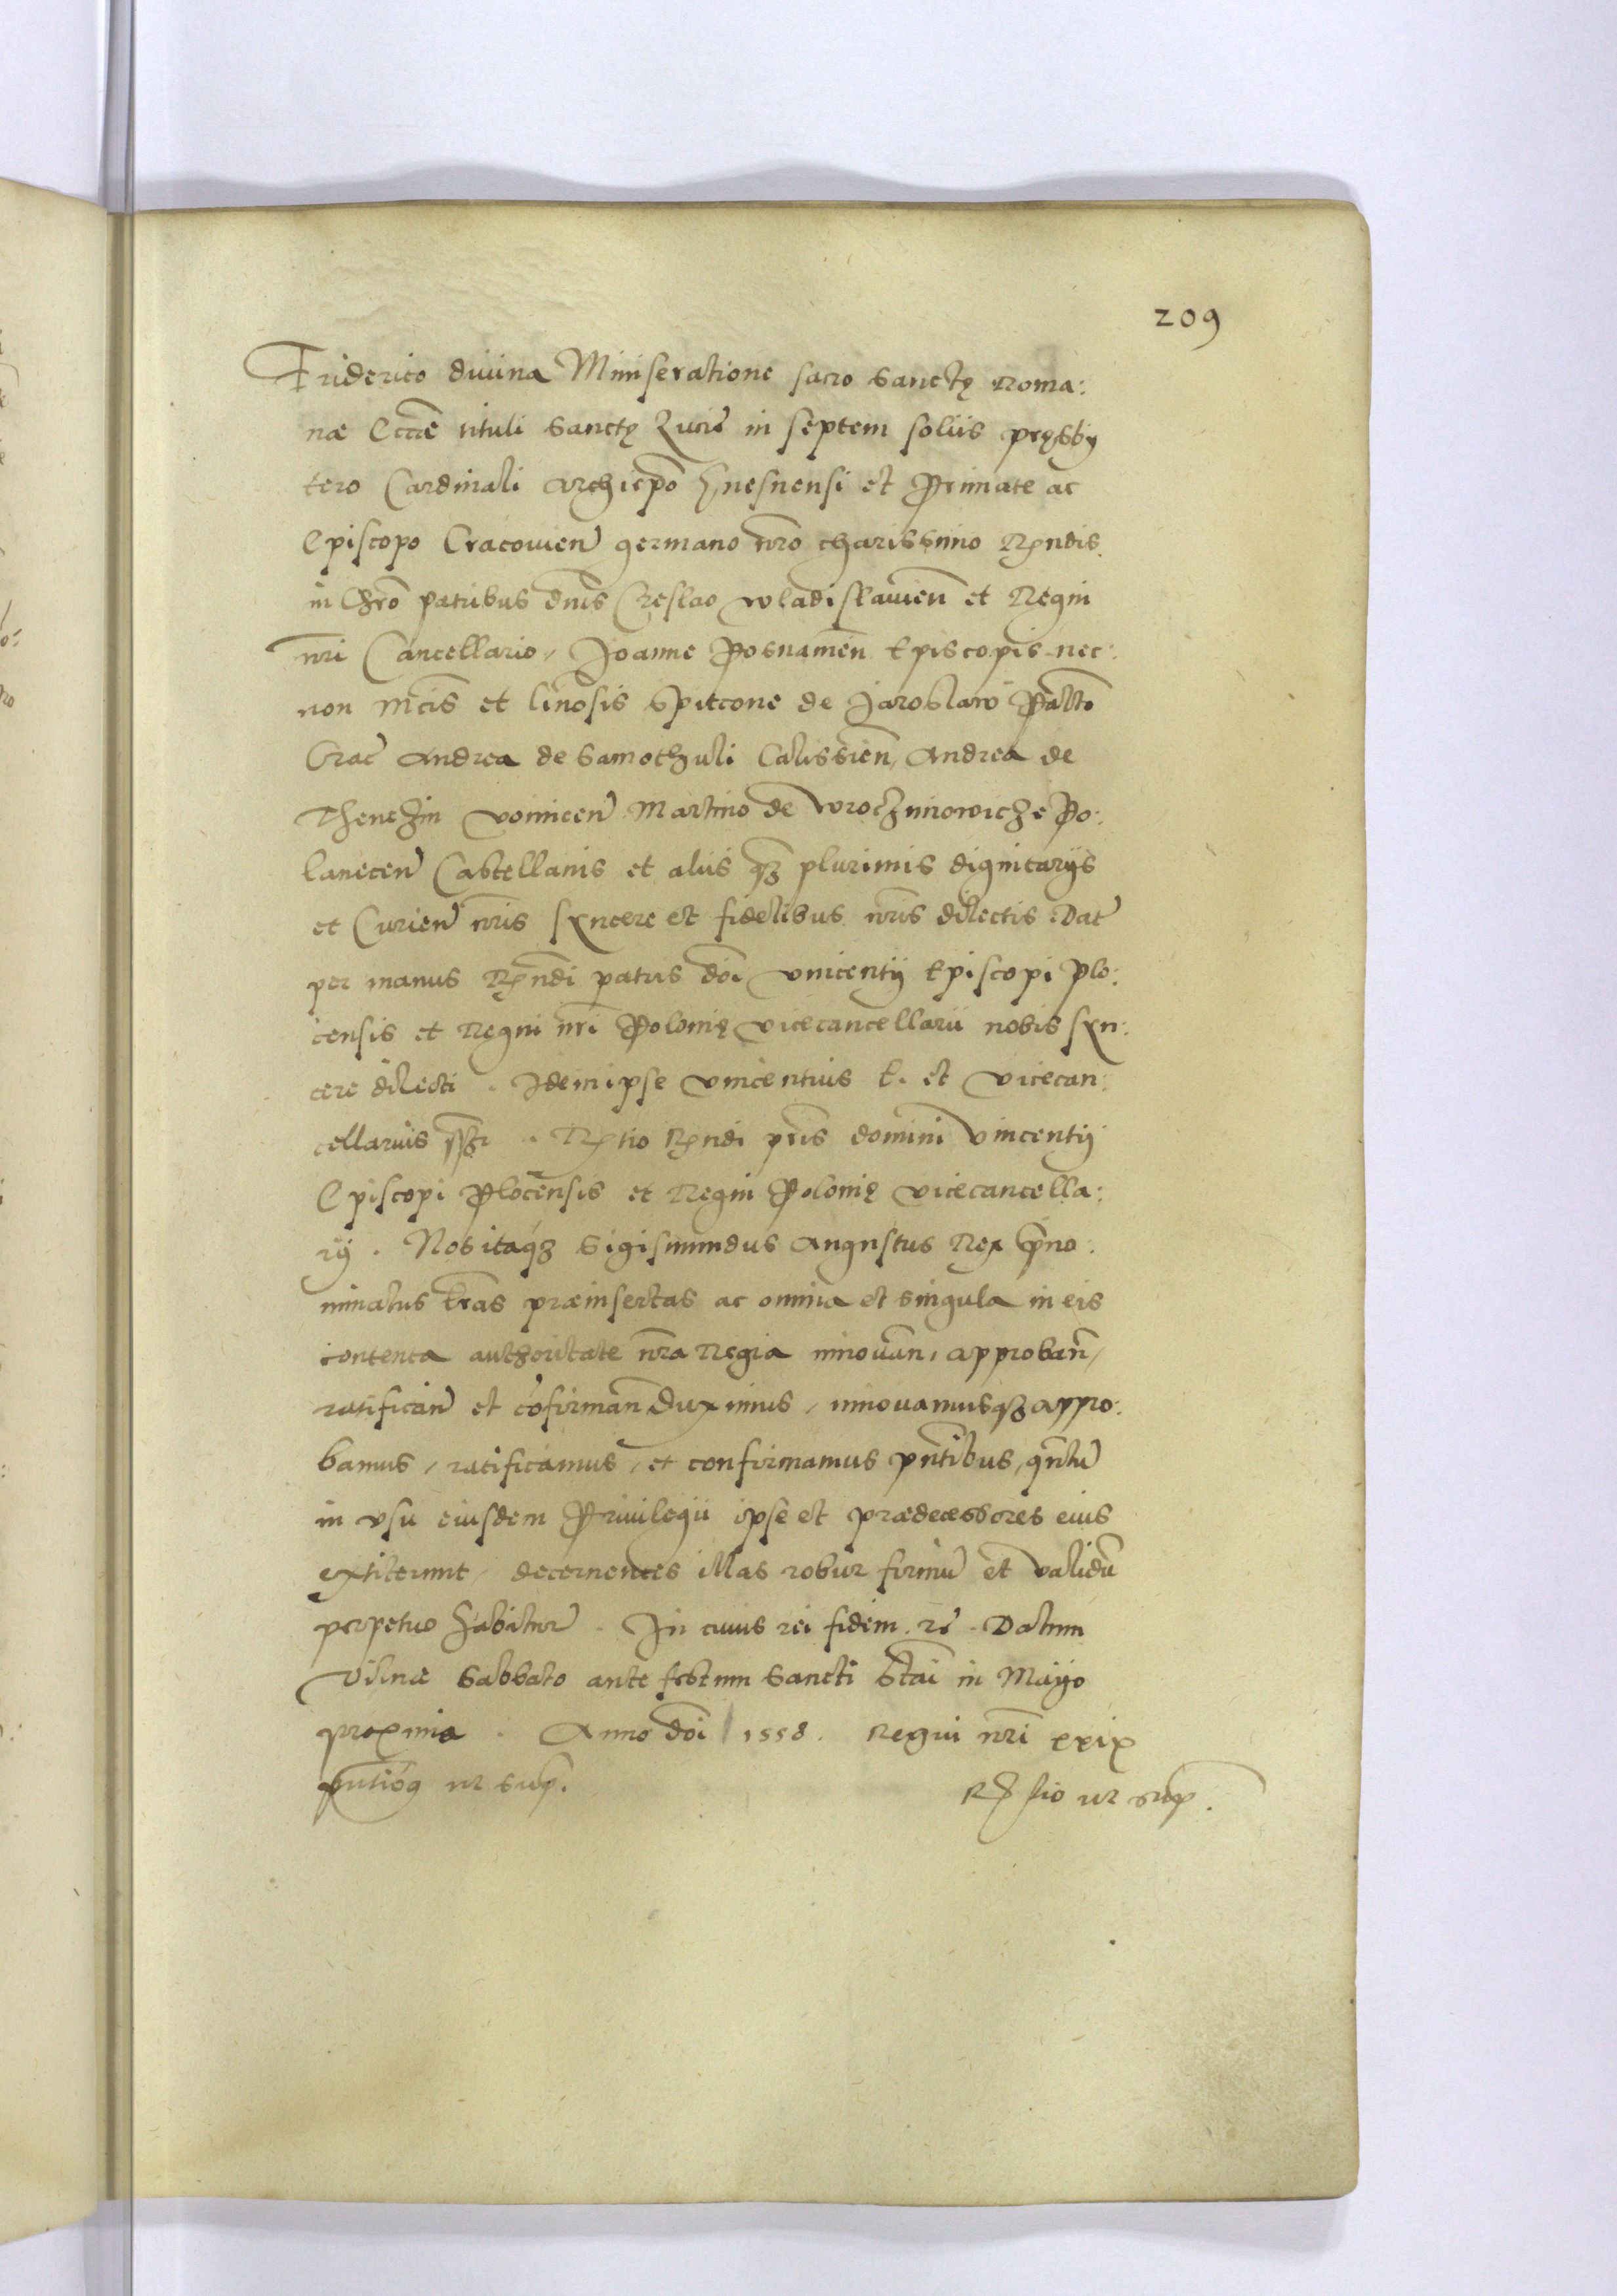 209
Friderico diuina Miniseratione sacro sanctę Roma:
næ Eccłæ tituli Sanctę Lucie in septem soliis pręsby
tero Cardinali Archiepo Gnesnensi et Primate ac
Episcopo Cracouien germano nro charissimo Rendis
in Chro patribus dnis Creslao Wladislauien et Regni
nri Cancellario, Joanne Posnanien Episcopis nec:
non Mcis et Genosis Spitcone de Jaroslaw Palto
Crac Andrea de Samothuli Calissien, Andrea de
Thenchin Voinicen Martino de Wroczimowicze Po:
lanecen Castellanis et aliis qz plurimis dignitarijs
et Curien nris syncere et fidelibus nris dilectis Dat
per manus Rendi patris doi Vincentij Episcopi Plo:
censis et Regni nri Polonię Vicecancellarii nobis syn:
cere dilecti. Idem ipse Vincentius E. et Vicecan:
cellarius sszt. Rtio Rendi pris domini Vincentij
Episcopi Plocensis et Regni Polonię Vicecancella:
rij. Nos itaqz Sigismundus Augustus Rex prno:
minatus lras præinsertas ac omnia et singula in eis
contenta authoritate nra Regia innouan, approban,
ratifican et cofirman duximus, innouamusqz appro:
bamus, ratificamus, et confirmamus pntibus, qntu
in vsu eiusdem Priuilegii ipse et prædecessores eius
extiterunt, decernentes illas robur firmu et validu
perpetuo habitur. In cuius rei fidem. rc. Datum
Vilnæ Sabbato ante festum Sancti Stai in Mayo
proxima. Anno doi 1558. Regni nri xxix
pntibq ut sup.
Rssio ut sup.